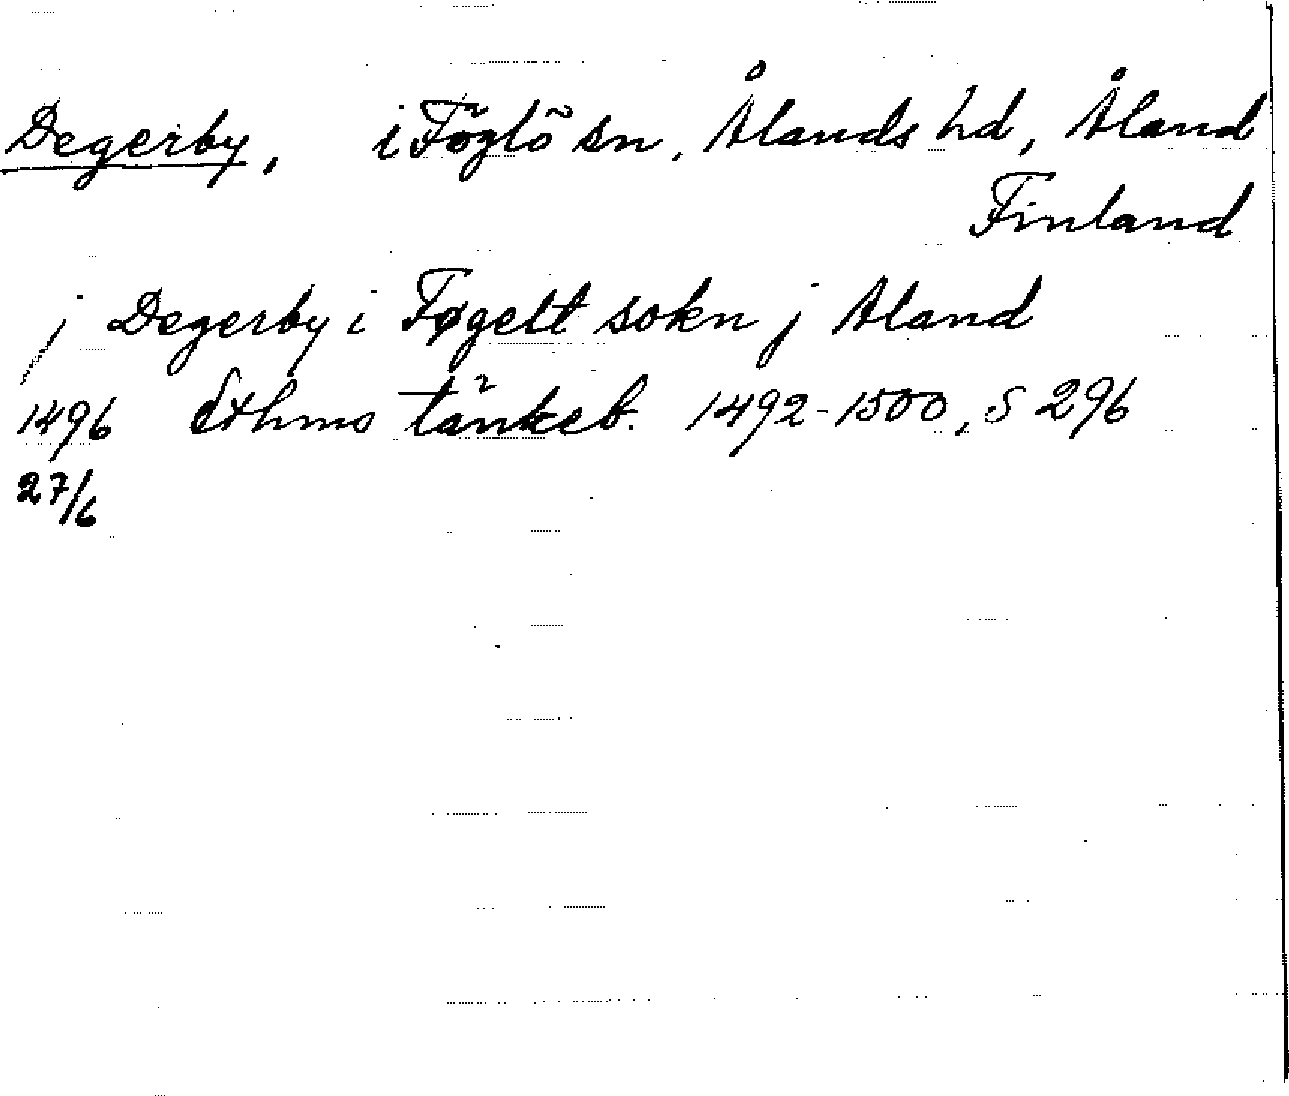 Degerby, i Föglö sn, Ålands hd, Åland
Finland
j Degerby i Føgelt sokn j Aland
1496 Sthms tänkeb. 1492-1500, S 296
27/6